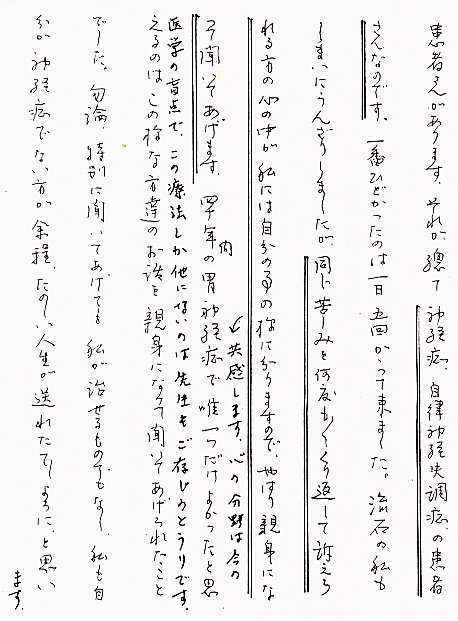 患者さんがあります。それが、總て神経症、自律神経失調症の患者
さんなのです。一番ひどかったのは一日五回かゝって来ました。流石の私も
しまいにうんざりしましたが、同じ苦しみを何度もくり返して訴えら
れる方の心の中が私には自分の事の様に分りますので、やはり親身にな
って聞いてあげます。四十年の間胃神経症で唯一つだけよかったと思
↙共感します。心の分野は今の
医学の盲点で、この療法しか他にないのは先生もご存じのとうりです。
えるのはこの様な方達のお話を親身になって聞いてあげられたこと
でした。勿論、特別に聞いてあげても私が治せるものでもなし、私も自
分が神経症でない方が余程、たのしい人生が送れたでしょうに、と思い
ます。